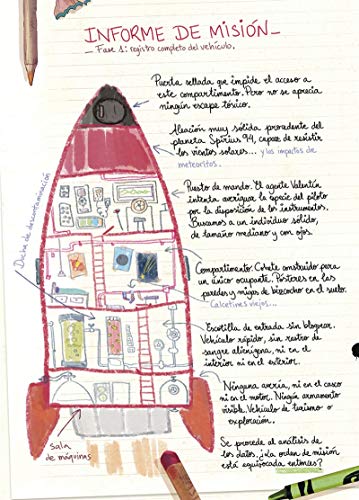 INFORME DE MISIÓN_
_ Fase 1: registro completo del vehículo.
Puerta sellada que impide el acceso a
este compartimento. Pero no se aprecia
ningún escape tóxico.
Aleación muy sólida procedente del
planeta Spirius 94, capaz de resistir
los vientos solares... y los impactos de
meteoritos.
Ducha de descontaminación
Puesto de mando. El agente Valentín
intenta averiguar la especie del piloto
por la disposición de los instrumentos.
Buscamos a un individuo sólido,
de tamaño mediano y con ojos.
Compartimento. Cohete construido para
un único ocupante. Pósteres en las
paredes y migas de bizcocho en el suelo.
Calcetines viejos...
Escotilla de entrada sin bloquear.
Vehículo rápido, sin rastro de
sangre alienígena, ni en el
interior ni en el exterior.
Ninguna avería, ni en el casco
ni en el motor. Ningún armamento
visible. Vehículo de turismo o
exploración.
Sala
de máquinas
Se procede al análisis de
los datos. ¿La orden de misión
está equivocada entonces?